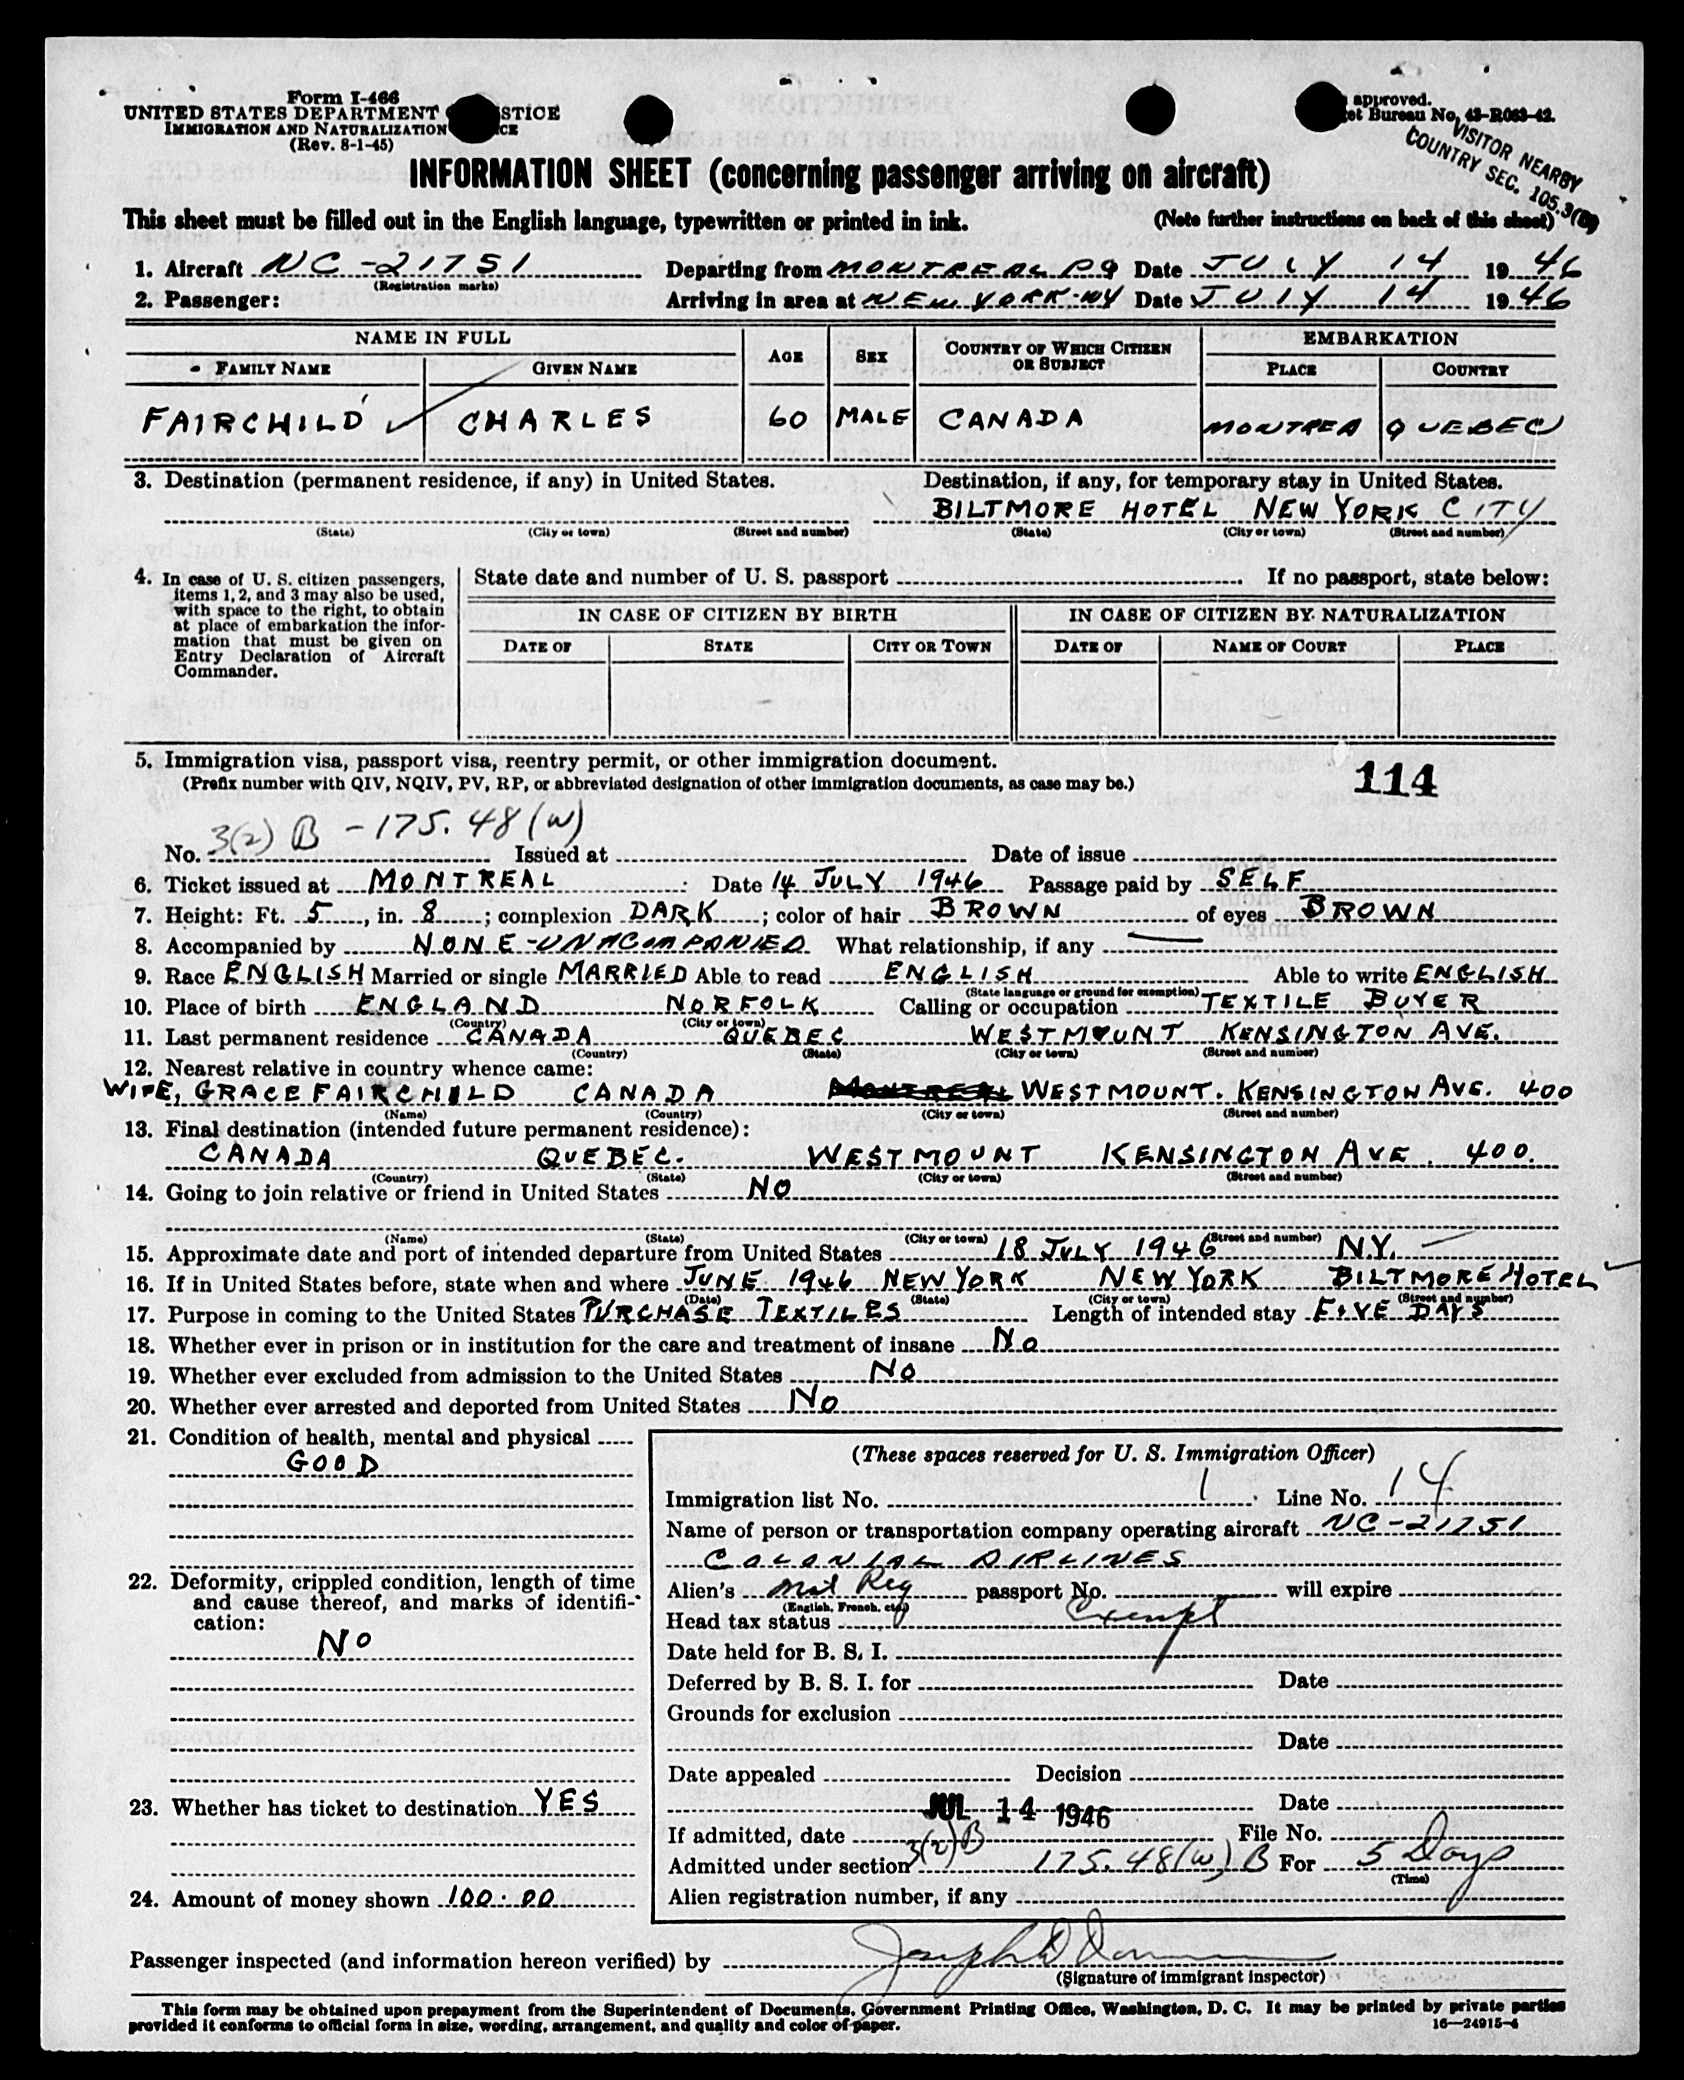 Form I-466
UNITED STATES DEPARTMENT STICE
IMMIGRATION AND NATURALIZATION CE
(Rev. 8-1-45)
approved.
et Bureau No. 43-R063-42.
VISITOR NEARBY
COUNTRY SEC. 105.3(B)
INFORMATION SHEET (concerning passenger arriving on aircraft)
This sheet must be filled out in the English language, typewritten or printed in ink. (Note further instructions on back of this sheet)
1. Aircraft NC-21751 Departing from MONTREAL PQ Date JULY 14 1946
(Registration marks)
2. Passenger: Arriving in area at NEW YORK NY Date JULY 14 1946
NAME IN FULL AGE SEX COUNTRY OF WHICH CITIZEN OR SUBJECT EMBARKATION
FAMILY NAME GIVEN NAME PLACE COUNTRY
FAIRCHILD CHARLES 60 MALE CANADA MONTREA QUEBEC
3. Destination (permanent residence, if any) in United States. Destination, if any, for temporary stay in United States.
BILTMORE HOTEL NEW YORK CITY
(State) (City or town) (Street and number) (State) (City or town) (Street and number)
4. In case of U. S. citizen passengers, items 1, 2, and 3 may also be used, with space to the right, to obtain at place of embarkation the information that must be given on Entry Declaration of Aircraft Commander.
State date and number of U. S. passport If no passport, state below:
IN CASE OF CITIZEN BY BIRTH IN CASE OF CITIZEN BY NATURALIZATION
DATE OF STATE CITY OR TOWN DATE OF NAME OF COURT PLACE
5. Immigration visa, passport visa, reentry permit, or other immigration document.
(Prefix number with QIV, NQIV, PV, RP, or abbreviated designation of other immigration documents, as case may be.)
114
No. 3(2) B - 175.48(w) Issued at Date of issue
6. Ticket issued at MONTREAL Date 14 JULY 1946 Passage paid by SELF
7. Height: Ft. 5, in. 8; complexion DARK; color of hair BROWN of eyes BROWN
8. Accompanied by NONE-UNACOMPANIED What relationship, if any —
9. Race ENGLISH Married or single MARRIED Able to read ENGLISH Able to write ENGLISH
(State language or ground for exemption)
10. Place of birth ENGLAND NORFOLK Calling or occupation TEXTILE BUYER
(Country) (City or town)
11. Last permanent residence CANADA QUEBEC WESTMOUNT KENSINGTON AVE.
(Country) (State) (City or town) (Street and number)
12. Nearest relative in country whence came:
WIFE, GRACE FAIRCHILD CANADA MONTREAL WESTMOUNT. KENSINGTON AVE. 400
(Name) (Country) (City or town) (Street and number)
13. Final destination (intended future permanent residence):
CANADA QUEBEC. WESTMOUNT KENSINGTON AVE. 400.
(Country) (State) (City or town) (Street and number)
14. Going to join relative or friend in United States NO
(Name) (State) (City or town) (Street and number)
15. Approximate date and port of intended departure from United States 18 JULY 1946 N.Y. —
16. If in United States before, state when and where JUNE 1946 NEW YORK NEW YORK BILTMORE HOTEL
(Date) (State) (City or town) (Street and number)
17. Purpose in coming to the United States PURCHASE TEXTILES Length of intended stay FIVE DAYS
18. Whether ever in prison or in institution for the care and treatment of insane NO
19. Whether ever excluded from admission to the United States NO
20. Whether ever arrested and deported from United States NO
21. Condition of health, mental and physical
GOOD
22. Deformity, crippled condition, length of time and cause thereof, and marks of identification:
NO
23. Whether has ticket to destination YES
24. Amount of money shown 100.00
(These spaces reserved for U. S. Immigration Officer)
Immigration list No. 1 Line No. 14
Name of person or transportation company operating aircraft NC-21751
COLONIAL AIRLINES
Alien's Not Reg passport No. will expire
(English, French, etc.)
Head tax status Exempt
Date held for B. S. I.
Deferred by B. S. I. for Date
Grounds for exclusion
Date
Date appealed Decision
Date
JUL 14 1946
If admitted, date File No.
Admitted under section 3(2)B 175.48(w) B For 5 Days
(Time)
Alien registration number, if any
Passenger inspected (and information hereon verified) by Joseph
(Signature of immigrant inspector)
This form may be obtained upon prepayment from the Superintendent of Documents, Government Printing Office, Washington, D. C. It may be printed by private parties
provided it conforms to official form in size, wording, arrangement, and quality and color of paper. 16—24915-4